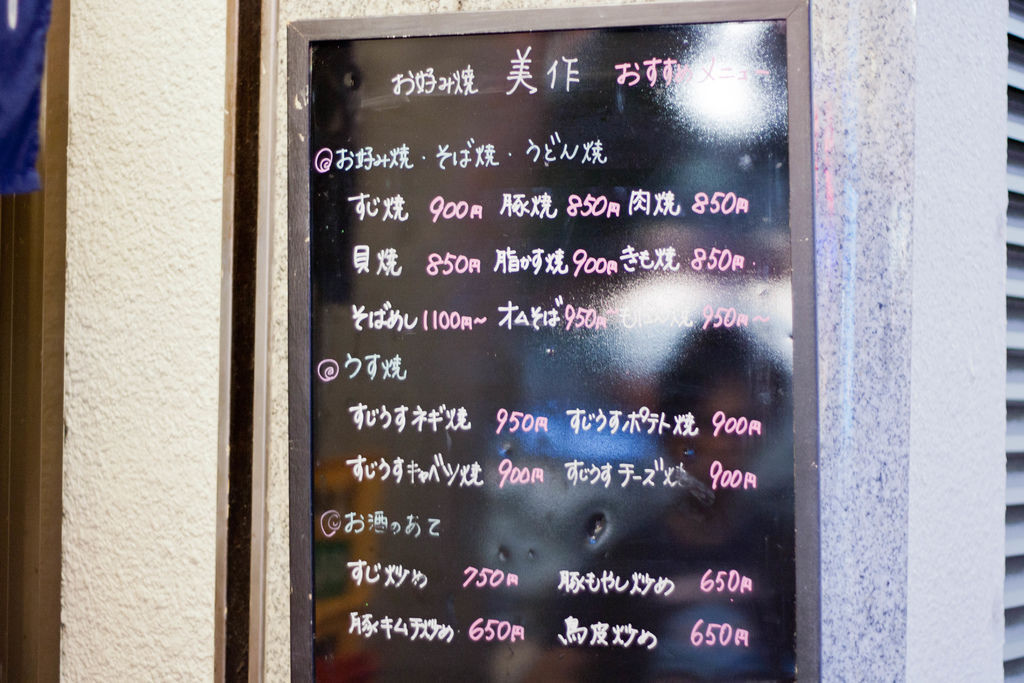 お好み焼 美作 おすすめメニュー
お好み焼・そば焼・うどん焼
すじ焼 900円 豚焼 850円 肉焼 850円
貝焼 850円 脂かす焼 900円 きも焼 850円
そばめし 1100円〜 オムそば 950円〜 焼 950円〜
うす焼
すじうすネギ焼 950円 すじうすポテト焼 900円
すじうすキャベツ焼 900円 すじうすチーズ焼 900円
お酒のあて
すじ炒め 750円 豚もやし炒め 650円
豚キムチ炒め 650円 炒め 650円